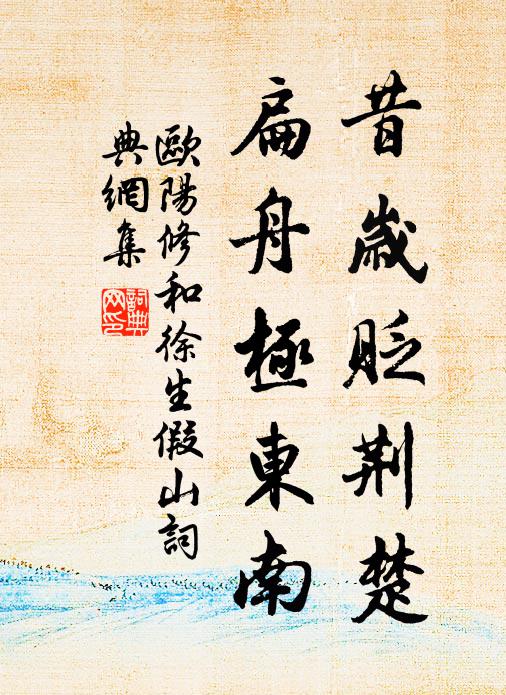 昔歲貶荆楚
扁舟極東南
歐陽修和徐生假山詞
典網集
詞典
网印